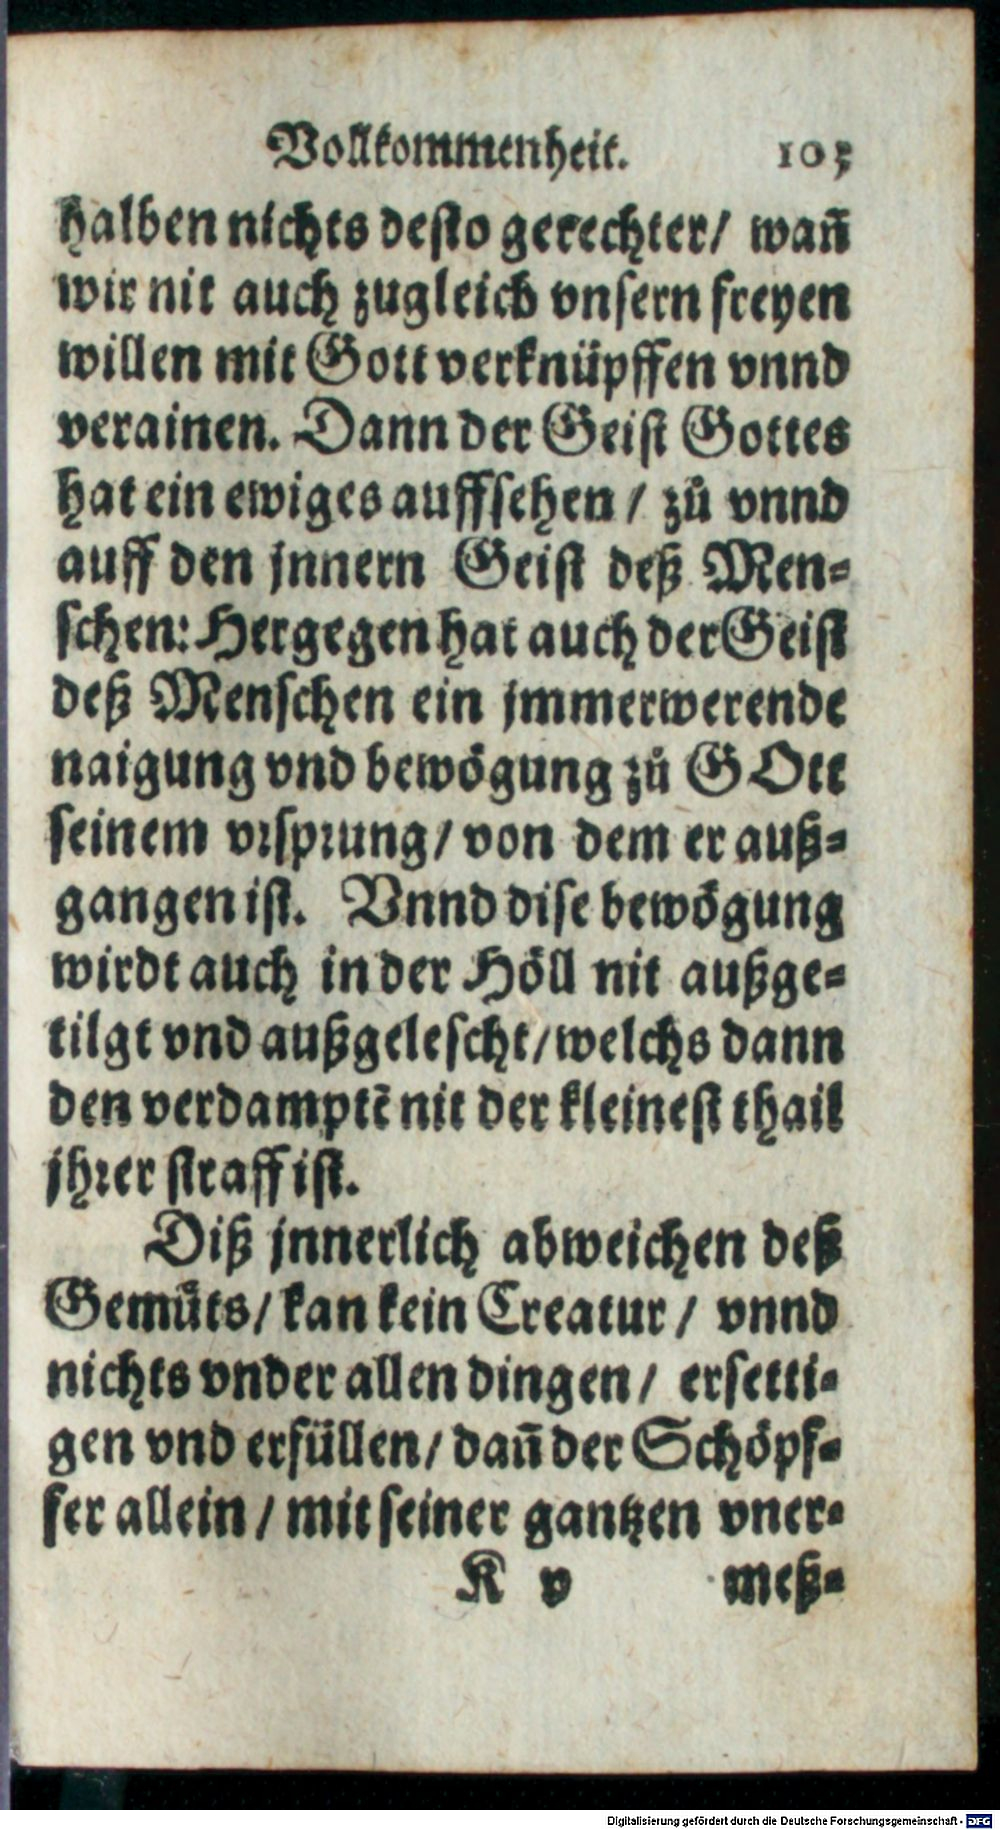 Vollkommenheit. 105
halben nichts desto gerechter/ wañ
wir nit auch zugleich vnsern freyen
willen mit Gott verknüpffen vnnd
verainen. Dann der Geist Gottes
hat ein ewiges auffsehen / zů vnnd
auff den jnnern Geist deß Men-
schen: Hergegen hat auch der Geist
deß Menschen ein jmmerwerende
naigung vnd bewögung zů GOtt
seinem vrsprung/ von dem er auß-
gangen ist. Vnnd dise bewögung
wirdt auch in der Höll nit außge-
tilgt vnd außgelescht/ welchs dann
den verdamptẽ nit der kleinest thail
jhrer straff ist.
Diß jnnerlich abweichen deß
Gemüts/ kan kein Creatur / vnnd
nichts vnder allen dingen/ ersetti-
gen vnd erfüllen/ dañ der Schöpf-
fer allein / mit seiner gantzen vner-
K v meß-
Digitalisierung gefördert durch die Deutsche Forschungsgemeinschaft - DFG